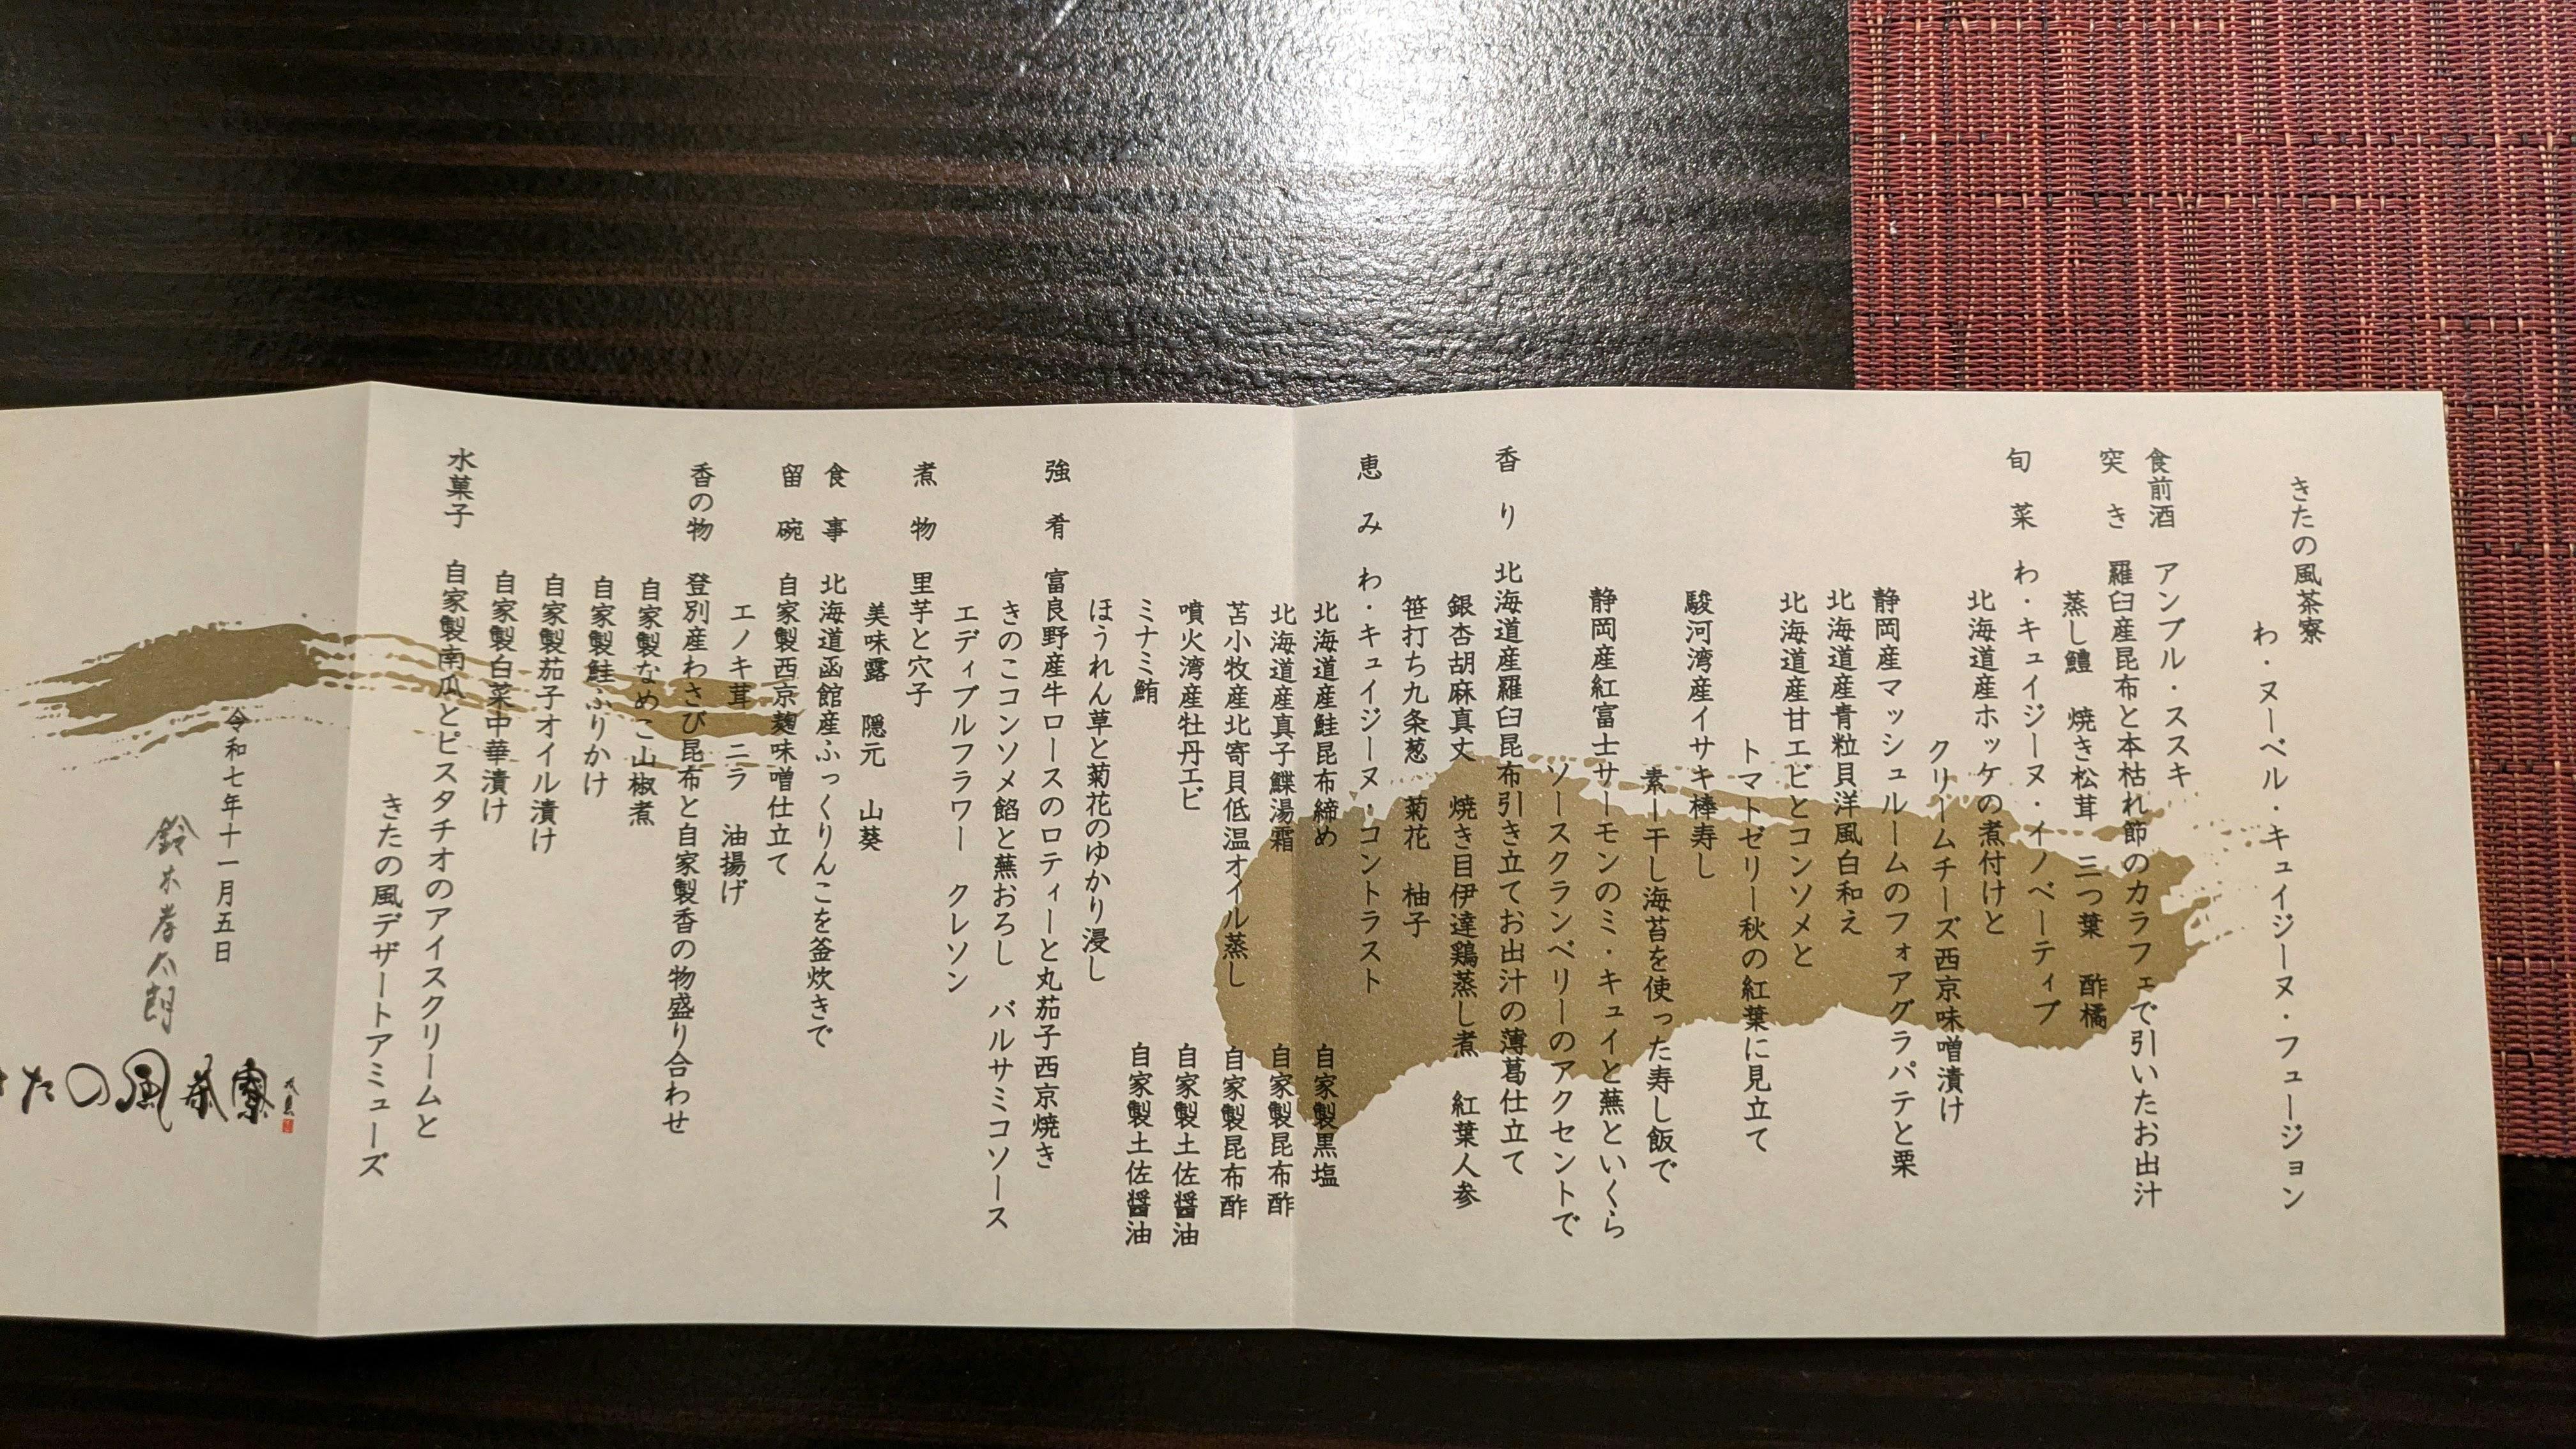 きたの風茶寮
わ・ヌーベル・キュイジーヌ・フュージョン
食前酒 アンブル・ススキ
突き 羅臼産昆布と本枯れ節のカラフェで引いたお出汁
蒸し鱧 焼き松茸 三つ葉 酢橘
旬菜 わ・キュイジーヌ・イノベーティブ
北海道産ホッケの煮付けと
クリームチーズ西京味噌漬け
静岡産マッシュルームのフォアグラパテと栗
北海道産青粒貝洋風白和え
北海道産甘エビとコンソメと
トマトゼリー秋の紅葉に見立て
駿河湾産イサキ棒寿し
素干し海苔を使った寿し飯で
静岡産紅富士サーモンのミ・キュイと蕪といくら
ソースクランベリーのアクセントで
香り 北海道産羅臼昆布引き立てお出汁の薄葛仕立て
銀杏胡麻真丈 焼き目伊達鶏蒸し煮 紅葉人参
笹打ち九条葱 菊花 柚子
恵み わ・キュイジーヌ・コントラスト
北海道産鮭昆布締め 自家製黒塩
北海道産真子鰈湯霜 自家製昆布酢
苫小牧産北寄貝低温オイル蒸し 自家製昆布酢
噴火湾産牡丹エビ 自家製土佐醤油
ミナミ鮪 自家製土佐醤油
ほうれん草と菊花のゆかり浸し
強肴 富良野産牛ロースのロティーと丸茄子西京焼き
きのこコンソメ餡と蕪おろし バルサミコソース
エディブルフラワー クレソン
煮物 里芋と穴子
美味露 隠元 山葵
食事 北海道函館産ふっくりんこを釜炊きで
留碗 自家製西京麹味噌仕立て
エノキ茸 ニラ 油揚げ
香の物 登別産わさび昆布と自家製香の物盛り合わせ
自家製なめこ山椒煮
自家製鮭ふりかけ
自家製茄子オイル漬け
自家製白菜中華漬け
水菓子 自家製南瓜とピスタチオのアイスクリームと
きたの風デザートアミューズ
令和七年十一月五日
鈴木孝太朗
きたの風茶寮